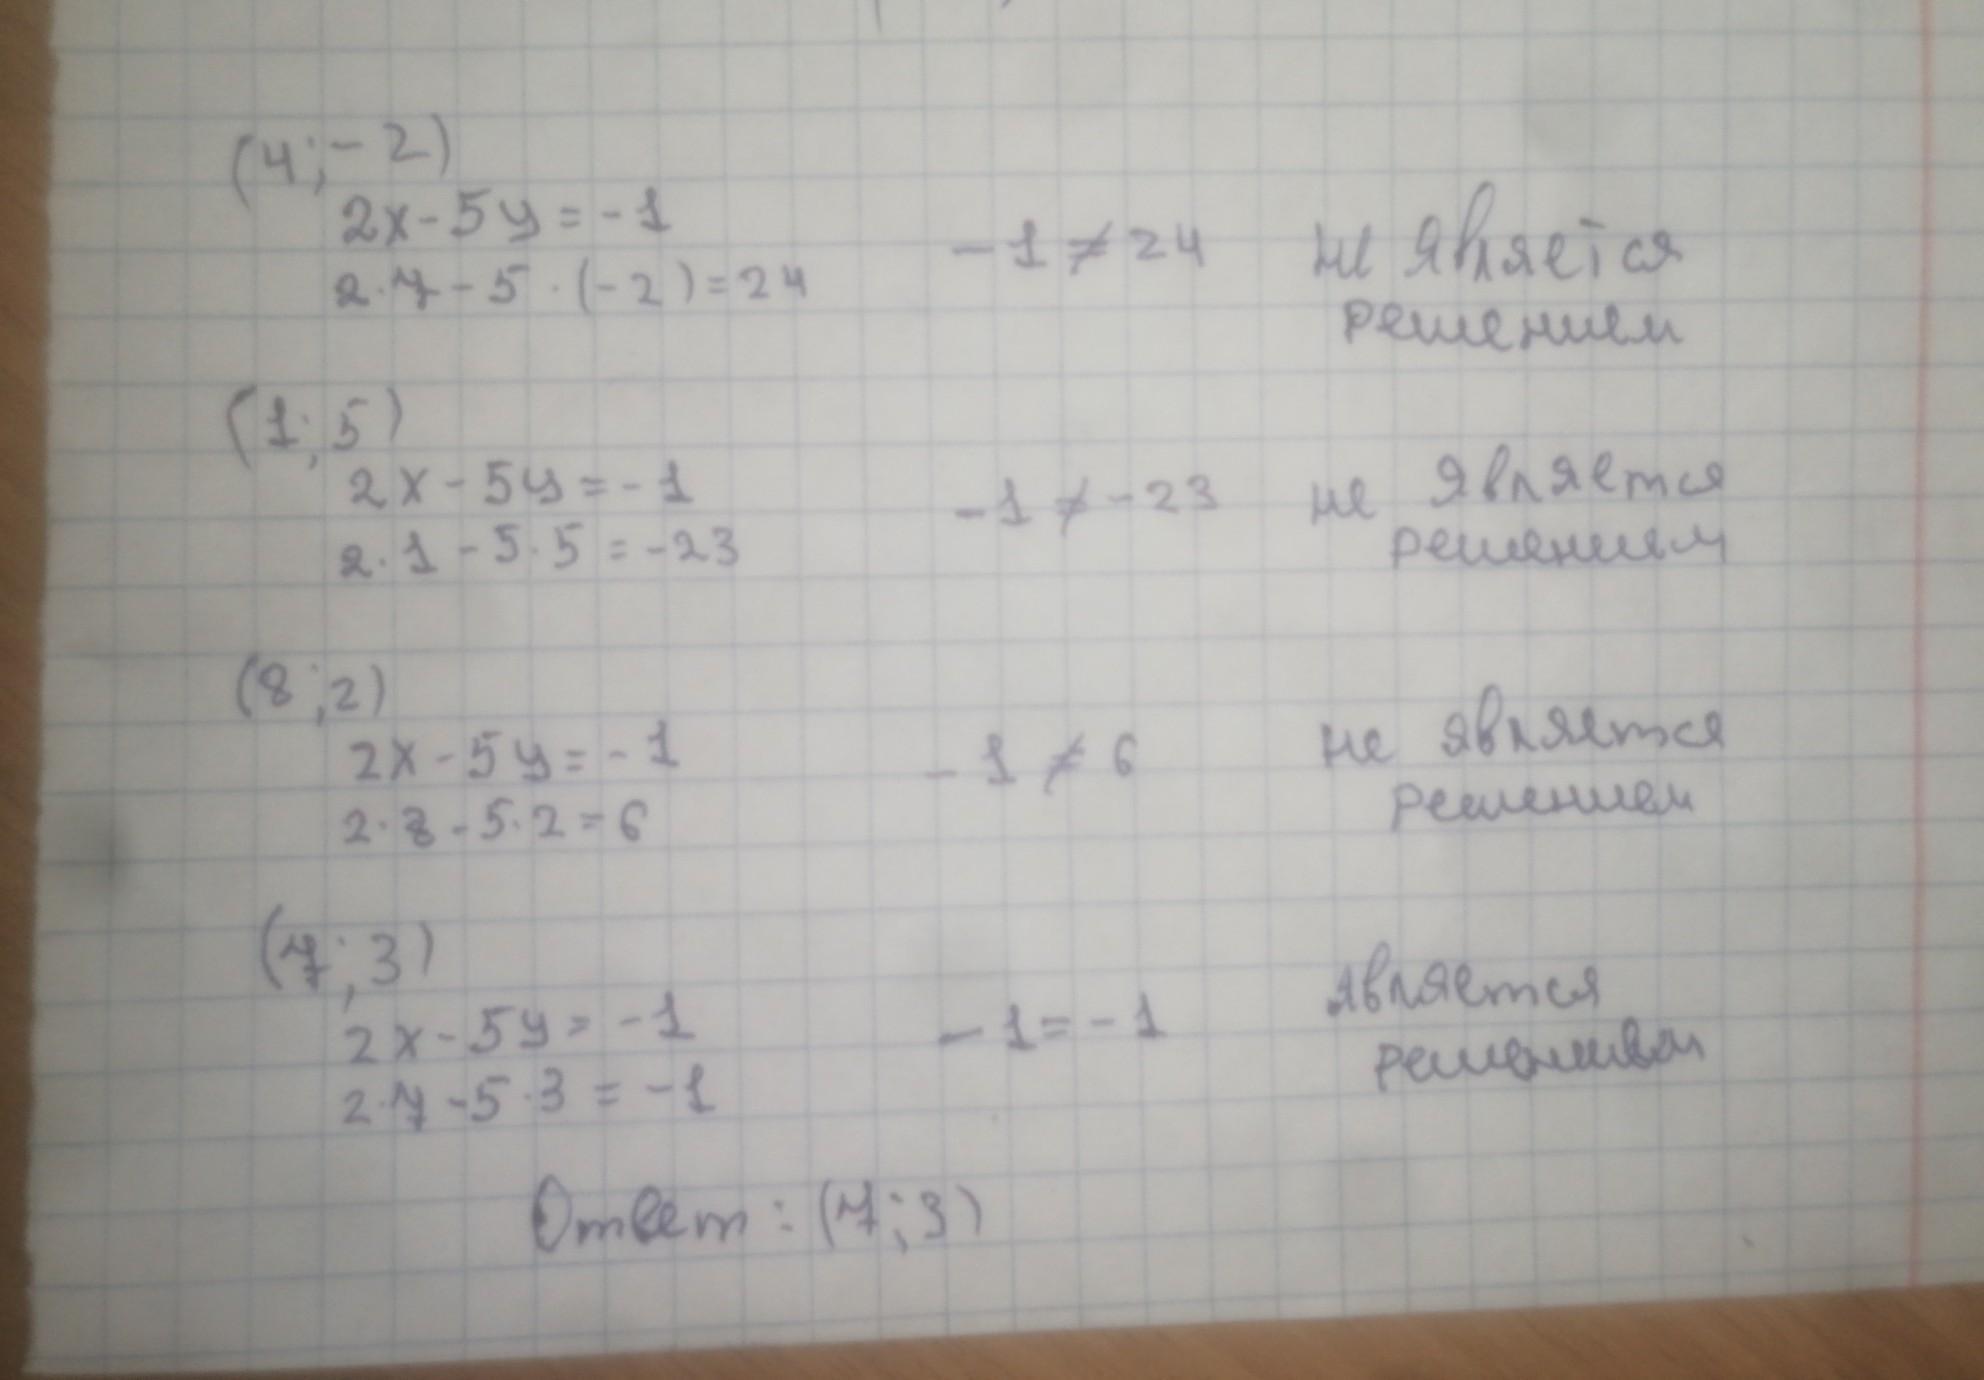 (4; -2)
2x - 5y = -1
-1 ≠ 24 не является
2·7 - 5·(-2) = 24
решением
(1; 5)
2x - 5y = -1
-1 ≠ -23 не является
2·1 - 5·5 = -23
решением
(8; 2)
2x - 5y = -1
-1 ≠ 6 не является
2·8 - 5·2 = 6
решением
(7; 3)
2x - 5y = -1
-1 = -1 является
2·7 - 5·3 = -1
решением
Ответ: (7; 3)